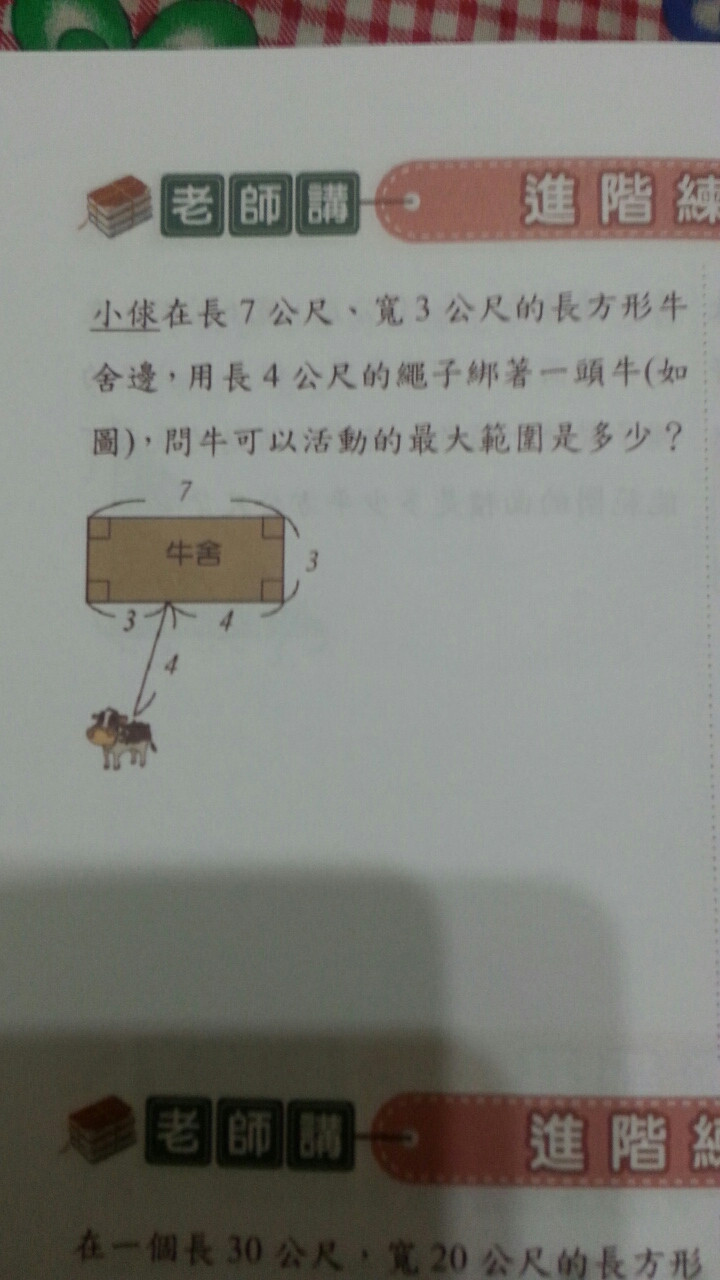 老師講 進階練
小俅在長7公尺、寬3公尺的長方形牛
舍邊，用長4公尺的繩子綁著一頭牛(如
圖)，問牛可以活動的最大範圍是多少？
7
牛舍
3
3 4
4
老師講 進階練
在一個長30公尺，寬20公尺的長方形